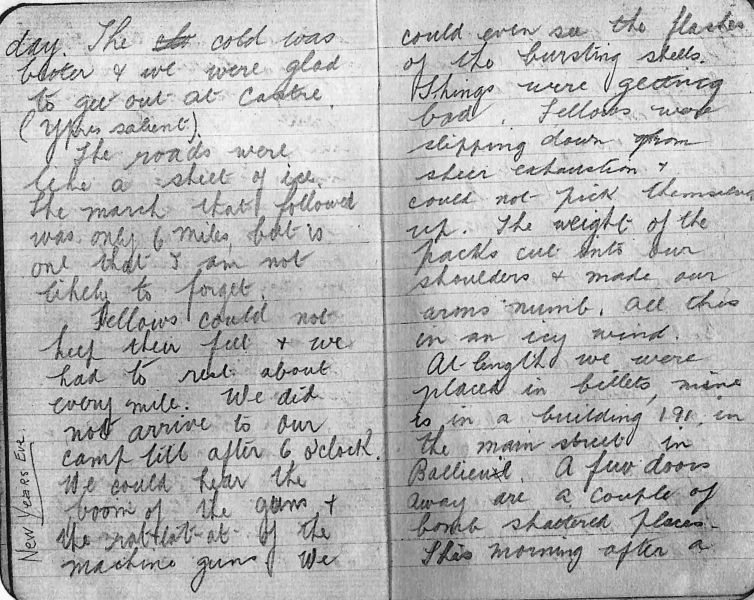 day. The cold was
bitter & we were glad
to get out at Caestre
(Ypres salient).
The roads were
like a sheet of ice.
The march that followed
was only 6 miles, but is
one that I am not
likely to forget.
Fellows could not
keep their feet & we
had to rest about
every mile. We did
not arrive to our
camp till after 6 o'clock.
We could hear the
boom of the guns &
the rat-tat-at of the
machine guns. We
New Years Eve.
could even see the flashes
of the bursting shells.
Things were getting
bad. Fellows were
slipping down from
sheer exhaustion &
could not pick themselves
up. The weight of the
packs cut into our
shoulders & made our
arms numb. All this
in an icy wind.
At length we were
placed in billets, mine
is in a building 191, in
the main street in
A few doors
away are a couple of
bomb shattered places.
This morning after a